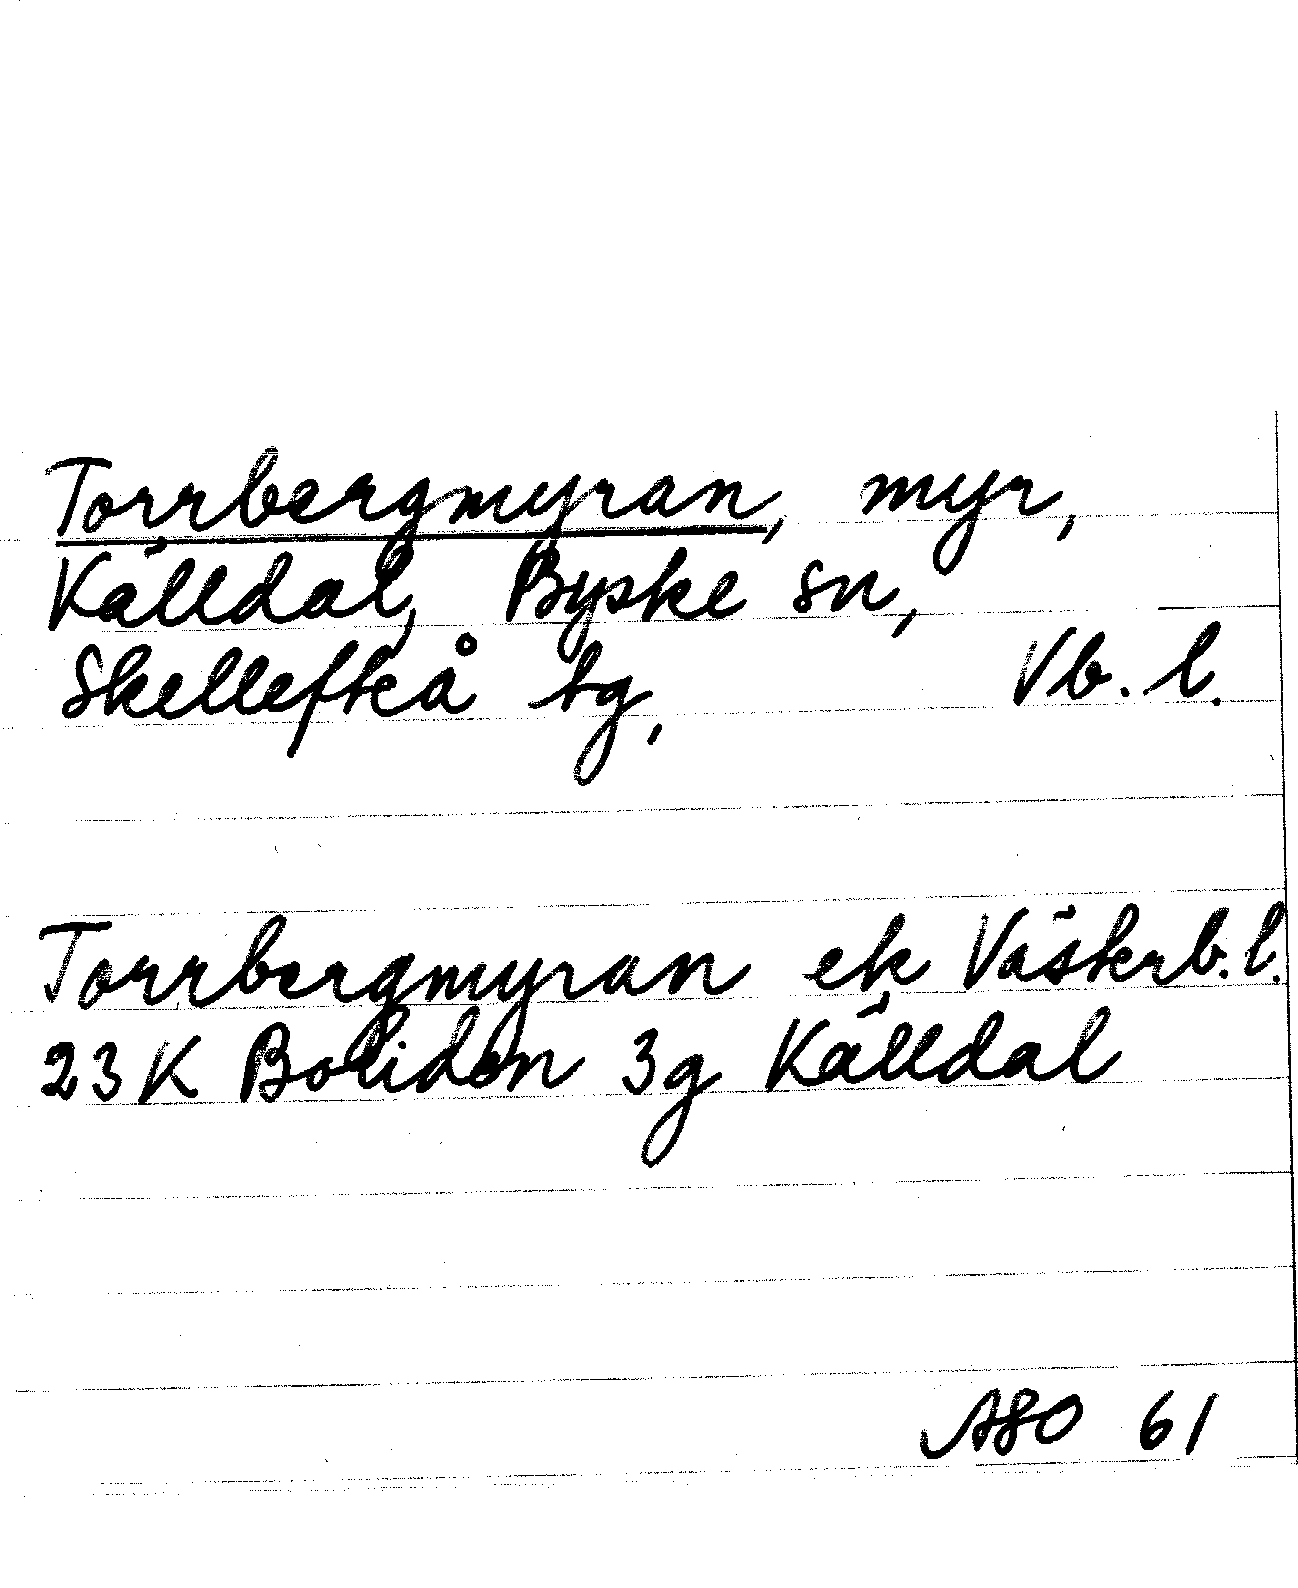 Torrbergmyran, myr,
Källdal, Byske sn,
Skellefteå tg, Vb. l.
Torrbergmyran ek Västerb. l.
23 K Boliden 3g Källdal
ASO 61